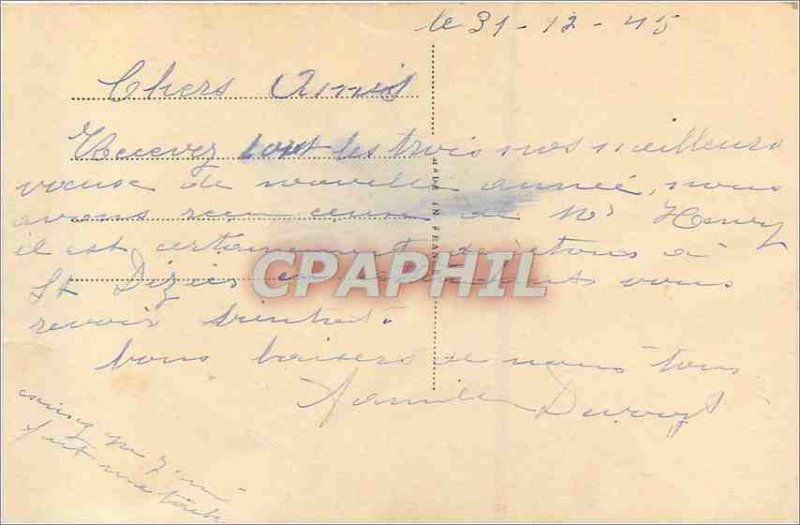 le 31-12-45
Chers Amis
Recevez tout les trois nos meilleurs
voeux de nouvelle année, nous
avons reçu ceux de Mr Henry
il est certainement de retour à
St Dizier en vous
revoir bientot.
bons baisers de nous tous
Famille
MADE IN FRANCE
CPAPHIL